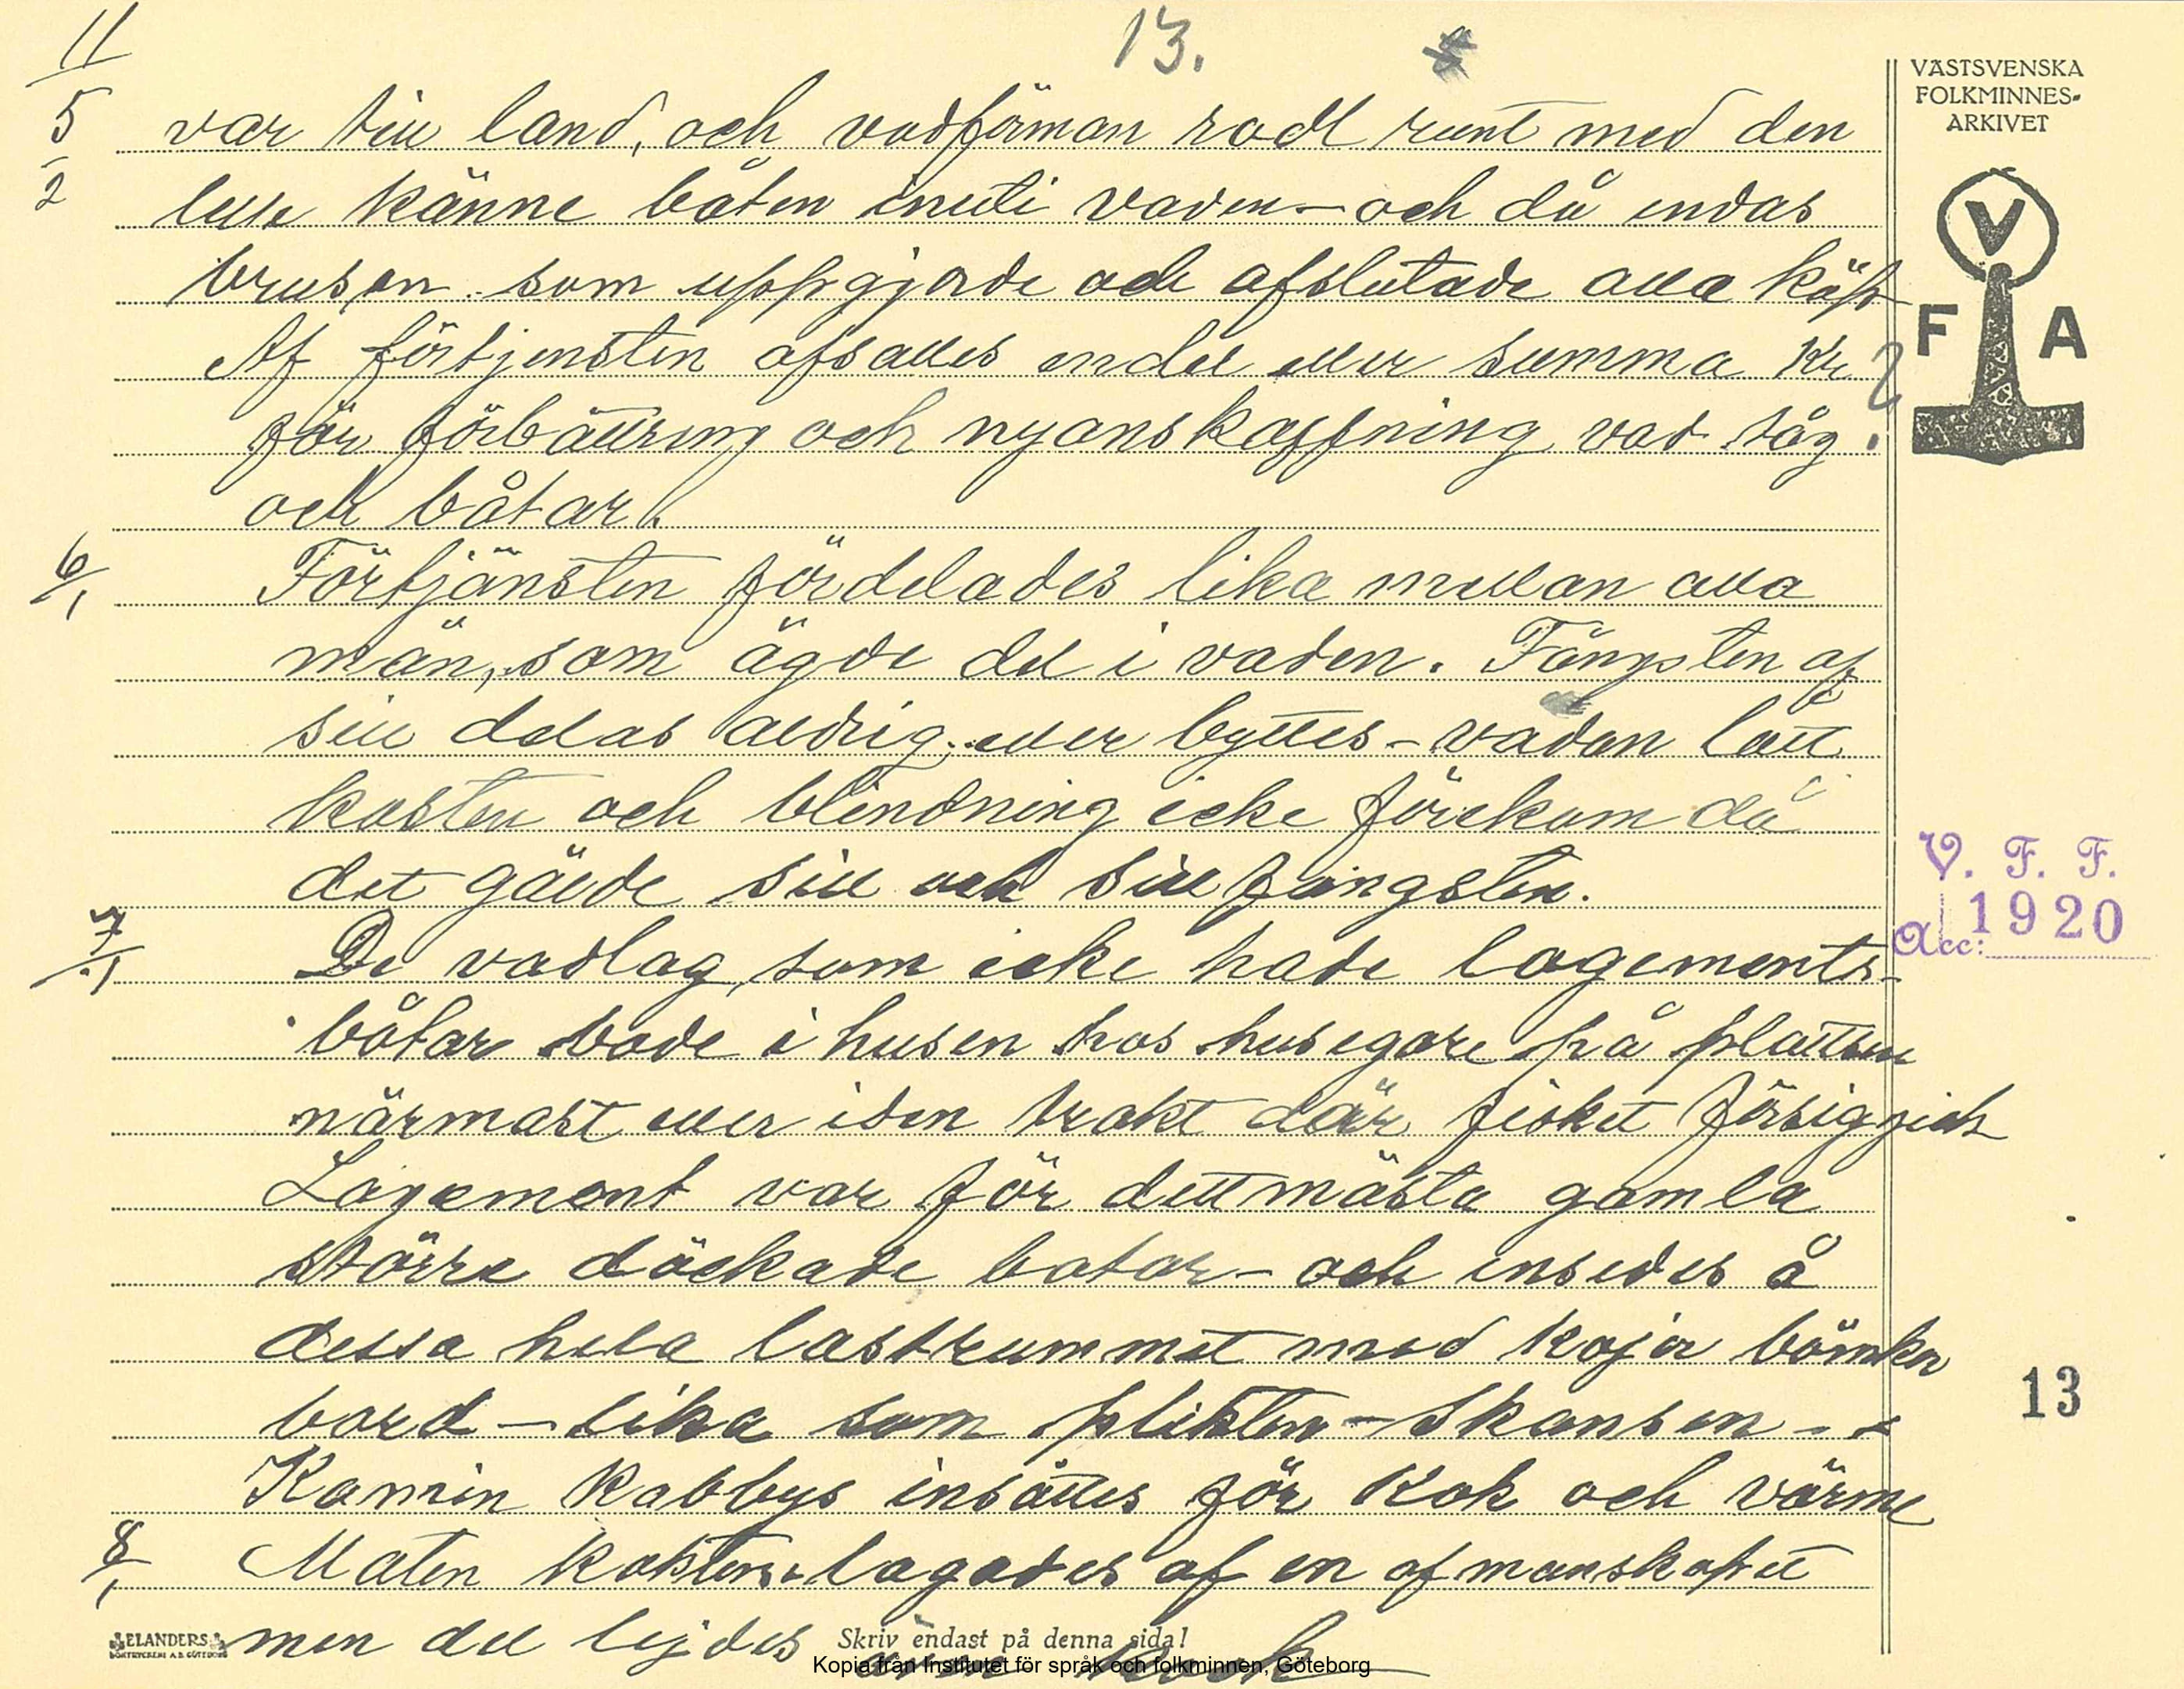 13.
11
5
2
VÄSTSVENSKA
FOLKMINNES-
ARKIVET
V
F A
var till land, och vadförman rodt runt med den
lille känne båten inuti vaden - och då endas
som uppgjorde och afslutade alla köp
Af förtjensten afsattes endel eller summa Kr
för förbättring och nyanskaffning vad tåg.
och båtar.
6/1
Förtjänsten fördelades lika mellan alla
män, som ägde del i vaden. Fångsten af
sill delas aldrig, eller byttes - vadan
kasten och blindning icke förekom då
det gälde sill och sillfångsten.
7/1
De vadlag, som icke hade logements-
båtar bode i husen hos husegare på plattsen
närmast eller iden trakt där fisket försiggick
Logement var för dettmästa gamla
större däckade båtar - och insedes å
dessa hela lastrummet med kojer bänker
bord - lika som plikten - Skansen - -
Kamin Kabbys insattes för Kok och värme
8/1
Maten lagades af en af manskapet
men del lejdes även kock
V. F. F.
Acc: 1920
13
ELANDERS
BOKTRYCKERI A.B. GÖTEBORG
Skriv endast på denna sida!
Kopia från Institutet för språk och folkminnen, Göteborg